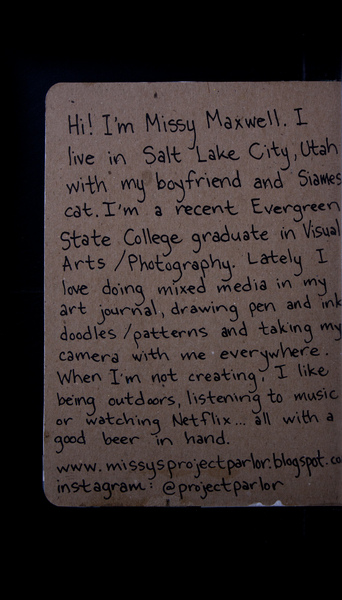 Hi! I'm Missy Maxwell. I
live in Salt Lake City, Utah
with my boyfriend and Siames
cat. I'm a recent Evergreen
State College graduate in Visual
Arts / Photography. Lately I
love doing mixed media in my
art journal, drawing pen and ink
doodles / patterns and taking my
camera with me everywhere.
When I'm not creating, I like
being outdoors, listening to music
or watching Netflix... all with a
good beer in hand.
www.missysprojectparlor.blogspot.co
instagram: @projectparlor